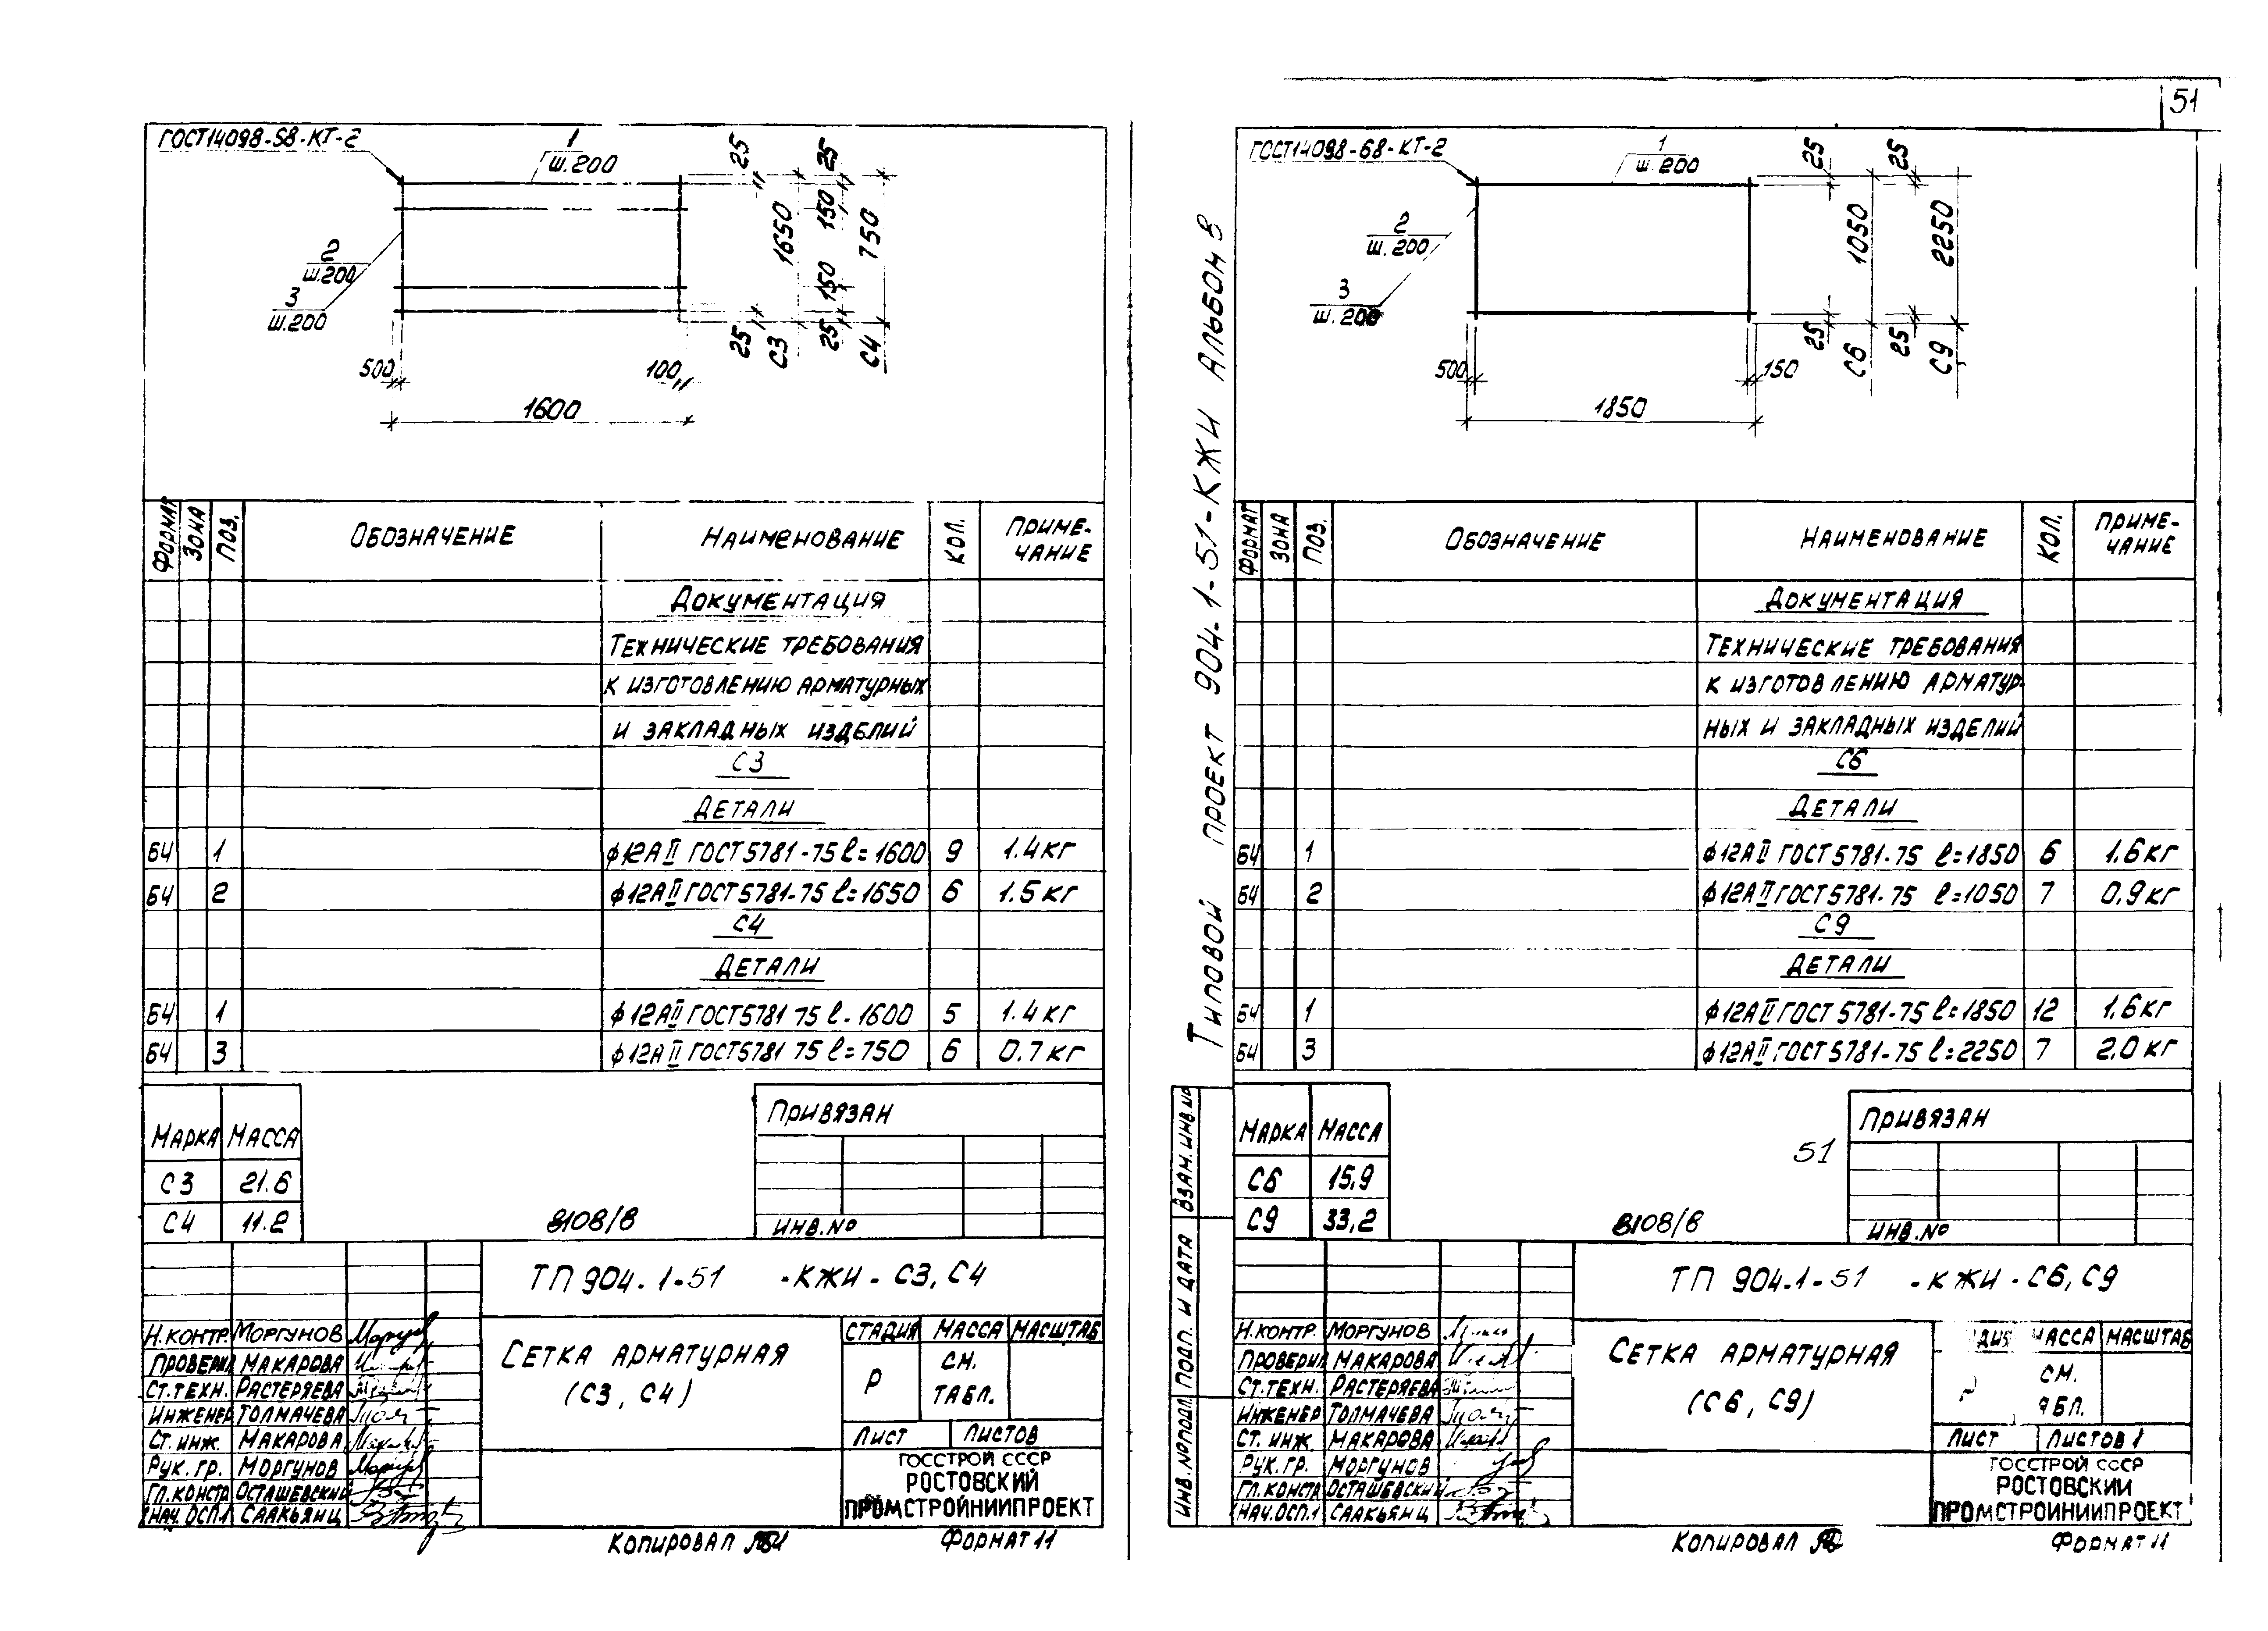 51
ГОСТ14098-58-КТ-2
1
Ш.200
2
Ш.200
3
Ш.200
25
1650
25
С3
25
150
150
25
750
С4
500
100
1600
ФОРМАТ
ЗОНА
ПОЗ.
ОБОЗНАЧЕНИЕ
НАИМЕНОВАНИЕ
КОЛ.
ПРИМЕ-
ЧАНИЕ
ДОКУМЕНТАЦИЯ
ТЕХНИЧЕСКИЕ ТРЕБОВАНИЯ
К ИЗГОТОВЛЕНИЮ АРМАТУРНЫХ
И ЗАКЛАДНЫХ ИЗДЕЛИЙ
С3
ДЕТАЛИ
БЧ 1 ф12АII ГОСТ5781-75 ℓ=1600 9 1.4кг
БЧ 2 ф12АII ГОСТ5781-75 ℓ=1650 6 1.5кг
С4
ДЕТАЛИ
БЧ 1 ф12АII ГОСТ5781 75 ℓ-1600 5 1.4кг
БЧ 3 ф12АII ГОСТ5781 75 ℓ=750 6 0.7кг
МАРКА МАССА
С3 21.6
С4 11.2
8108/8
ПРИВЯЗАН
ИНВ.№
ТП 904.1-51 -КЖИ-С3,С4
Н.КОНТР. МОРГУНОВ
ПРОВЕРИЛ МАКАРОВА
СТ.ТЕХН. РАСТЕРЯЕВА
ИНЖЕНЕР ТОЛМАЧЕВА
СТ.ИНЖ. МАКАРОВА
РУК.ГР. МОРГУНОВ
ГЛ.КОНСТР ОСТАШЕВСКИЙ
НАЧ.ОСП.1 СААКЬЯНЦ
СЕТКА АРМАТУРНАЯ
(С3, С4)
СТАДИЯ МАССА МАСШТАБ
Р СМ.
ТАБЛ.
ЛИСТ ЛИСТОВ
ГОССТРОЙ СССР
РОСТОВСКИЙ
ПРОМСТРОЙНИИПРОЕКТ
КОПИРОВАЛ
ФОРМАТ 11
ТИПОВОЙ ПРОЕКТ 904-1-51-КЖИ АЛЬБОМ 8
ГОСТ14098-68-КТ-2
1
Ш.200
2
Ш.200
3
Ш.200
25
1050
25
С6
25
2250
25
С9
500
150
1850
ФОРМАТ
ЗОНА
ПОЗ.
ОБОЗНАЧЕНИЕ
НАИМЕНОВАНИЕ
КОЛ.
ПРИМЕ-
ЧАНИЕ
ДОКУМЕНТАЦИЯ
ТЕХНИЧЕСКИЕ ТРЕБОВАНИЯ
К ИЗГОТОВЛЕНИЮ АРМАТУР-
НЫХ И ЗАКЛАДНЫХ ИЗДЕЛИЙ
С6
ДЕТАЛИ
БЧ 1 ф12АII ГОСТ5781-75 ℓ=1850 6 1.6кг
БЧ 2 ф12АII ГОСТ5781-75 ℓ=1050 7 0.9кг
С9
ДЕТАЛИ
БЧ 1 ф12АII ГОСТ5781-75 ℓ=1850 12 1.6кг
БЧ 3 ф12АII ГОСТ5781-75 ℓ=2250 7 2.0кг
МАРКА МАССА
С6 15,9
С9 33,2
51
8108/8
ПРИВЯЗАН
ИНВ.№
ВЗАМ.ИНВ.№
ПОДП. И ДАТА
ИНВ.№ПОДЛ.
ТП 904.1-51 -КЖИ-С6,С9
Н.КОНТР. МОРГУНОВ
ПРОВЕРИЛ МАКАРОВА
СТ.ТЕХН. РАСТЕРЯЕВА
ИНЖЕНЕР ТОЛМАЧЕВА
СТ. ИНЖ МАКАРОВА
РУК.ГР. МОРГУНОВ
ГЛ.КОНСТР ОСТАШЕВСКИЙ
НАЧ.ОСП.1 СААКЬЯНЦ
СЕТКА АРМАТУРНАЯ
(С6, С9)
ДИЯ МАССА МАСШТАБ
Р СМ.
АБЛ.
ЛИСТ ЛИСТОВ 1
ГОССТРОЙ СССР
РОСТОВСКИЙ
ПРОМСТРОЙНИИПРОЕКТ
КОПИРОВАЛ
ФОРМАТ 11